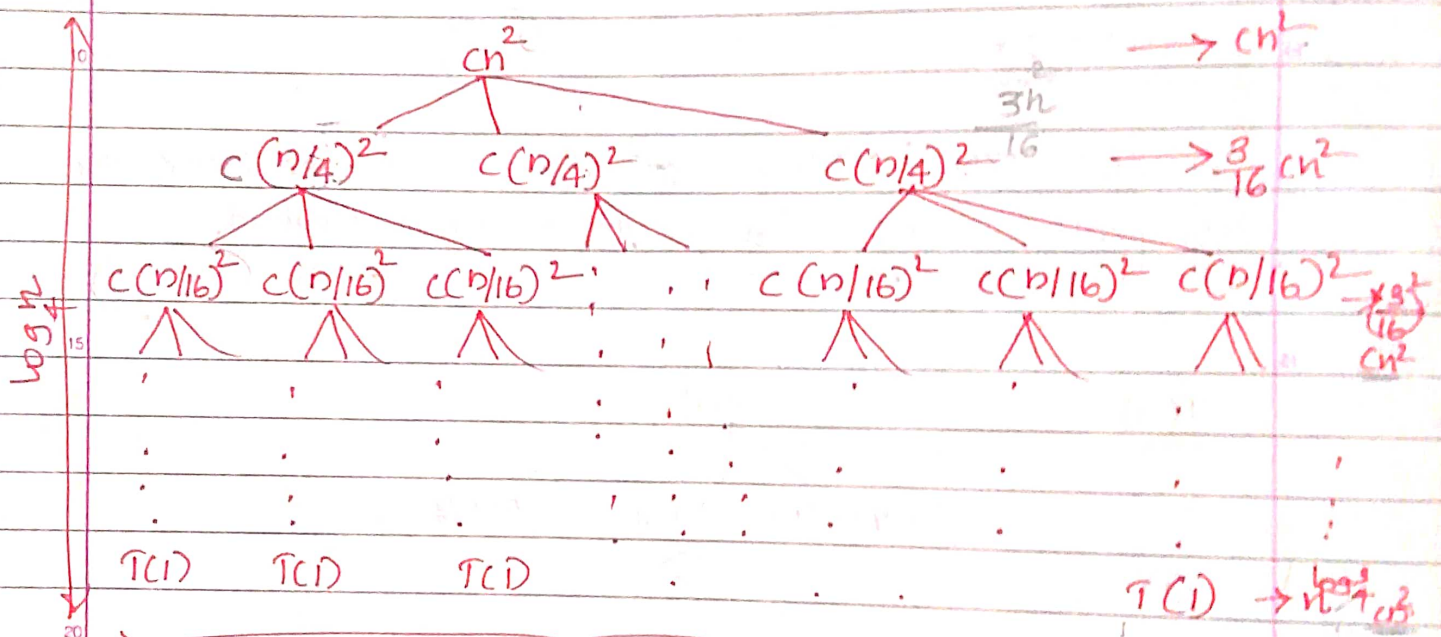 cn² → cn²
3n/16
c(n/4)² c(n/4)² c(n/4)² → 3/16 cn²
c(n/16)² c(n/16)² c(n/16)² c(n/16)² c(n/16)² c(n/16)² → (3/16)² cn²
log₄ n
15
T(1) T(1) T(1) T(1) →
20